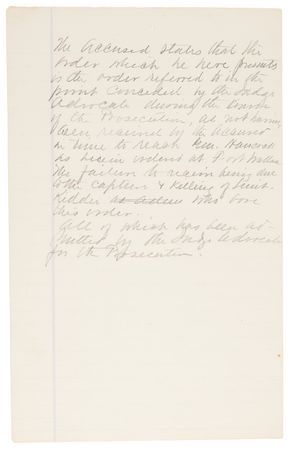 The Accused states that the
order which he here presents
is the order referred to in the
point conceded by the Judge
Advocate during the
of the Prosecution, as not having
been received by the Accused
in time to reach Gen. Hancock
as
The failure to receive being due
to the capture & killing of Lieut.
Kidder who bore
this order.
All of which has been ad-
mitted by the Judge Advocate
for the Prosecution.